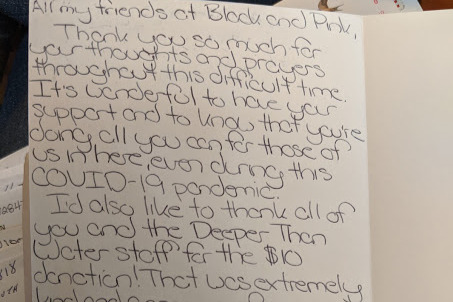 All my friends at Black and Pink,
Thank you so much for
your thoughts and prayers
throughout this difficult time.
It's wonderful to have your
support and to know that you're
doing all you can for those of
us in here, even during this
COVID-19 pandemic.
I'd also like to thank all of
you and the Deeper Than
Water staff for the $10
donation! That was extremely